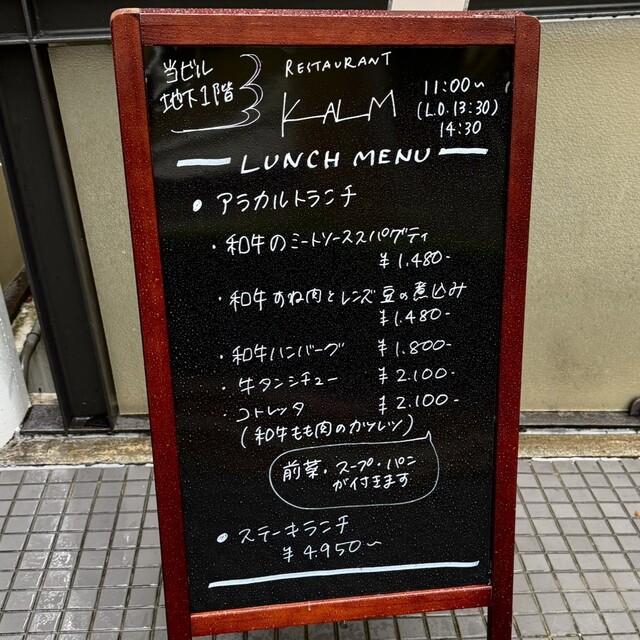 当ビル
地下1階
RESTAURANT
KALM
11:00~
(L.O.13:30)
14:30
LUNCH MENU
• アラカルトランチ
・和牛のミートソーススパゲティ
¥1.480-
・和牛すね肉とレンズ豆の煮込み
¥1.480-
・和牛ハンバーグ ¥1.800-
・牛タンシチュー ¥2.100-
・コトレッタ ¥2.100-
(和牛もも肉のカツレツ)
前菜・スープ・パン
が付きます
• ステーキランチ
¥4950~